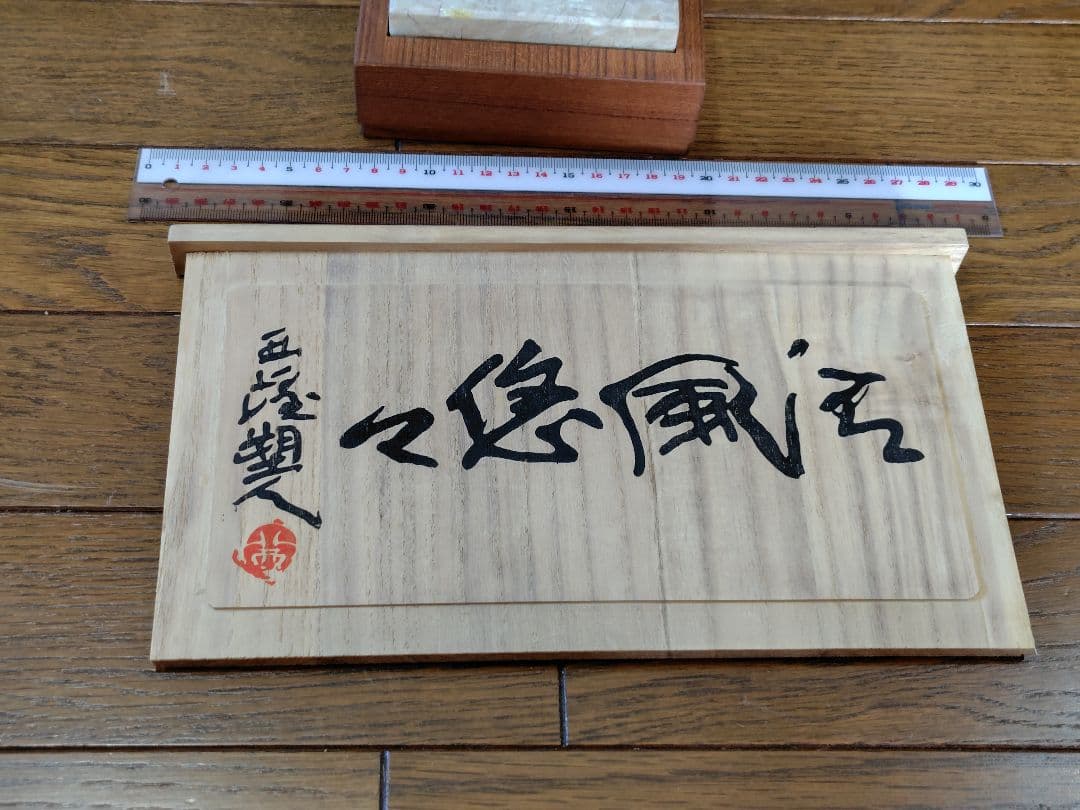 0 1 2 3 4 5 6 7 8 9 10 11 12 13 14 15 16 17 18 19 20 21 22 23 24 25 26 27 28 29 30
清風悠々
西望塑人